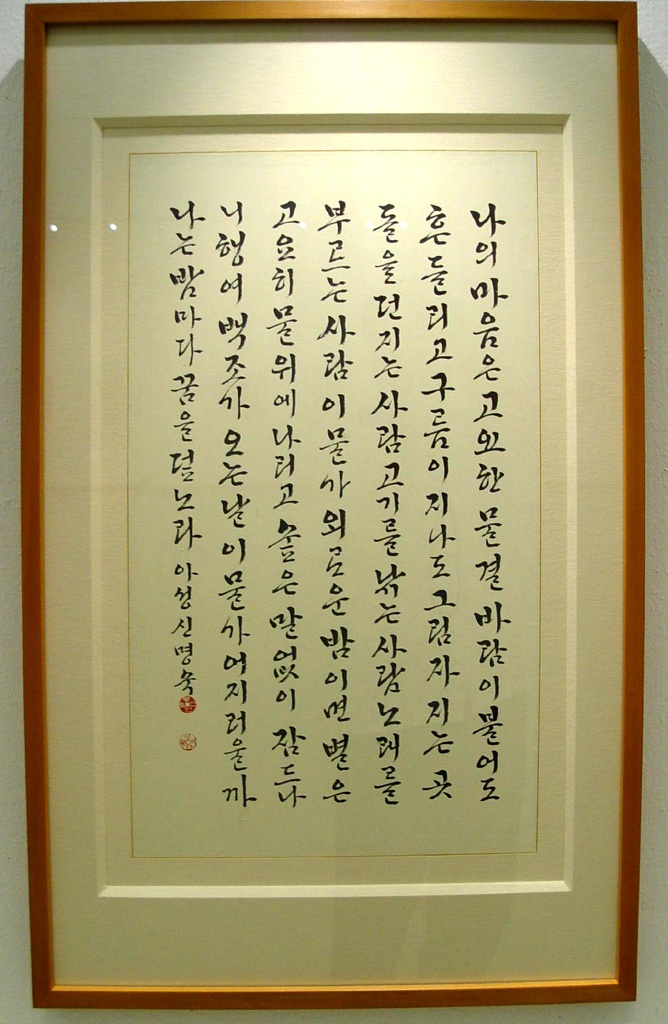 나의 마음은 고요한 물결 바람이 불어도
흔들리고 구름이 지나도 그림자 지는 곳
돌을 던지는 사람 고기를 낚는 사람 노래를
부르는 사람 이 물가 외로운 밤이면 별은
고요히 물 위에 나리고 숲은 말없이 잠드나
니 행여 백조가 오는 날 이 물가 어지러울까
나는 밤마다 꿈을 덮노라 아성 신명숙